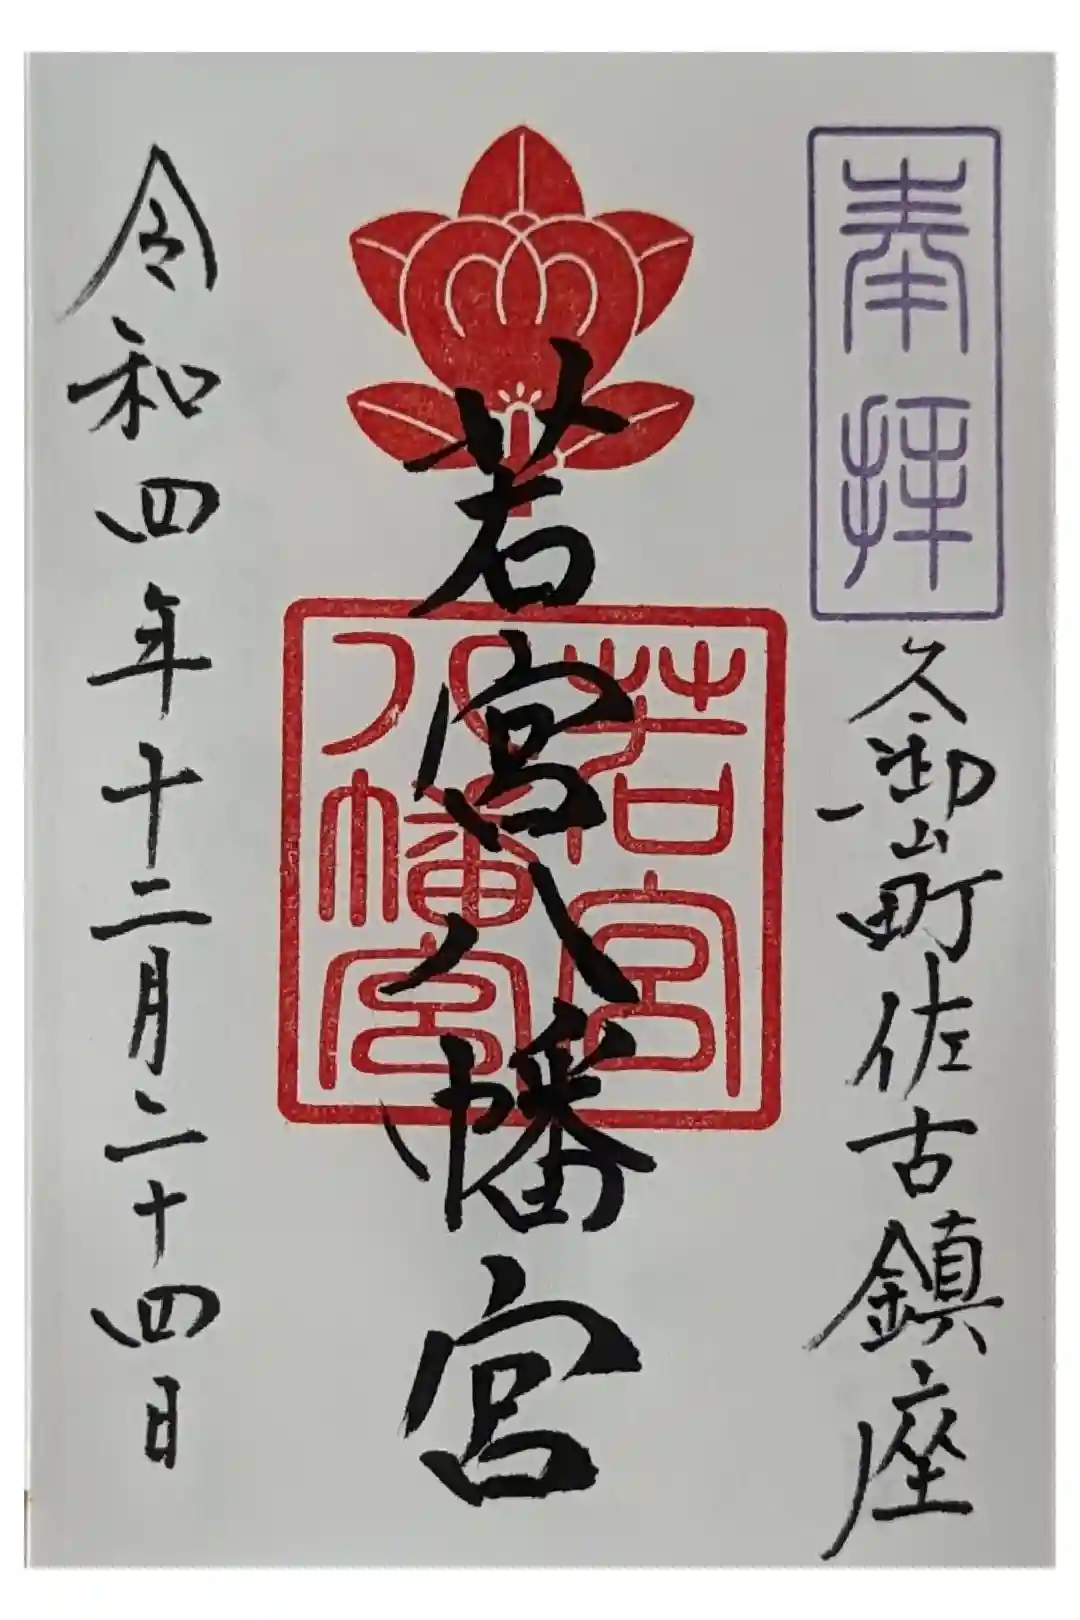 奉拝
久御山町佐古鎮座
若宮八幡宮
若宮
八幡宮
令和四年十二月二十四日